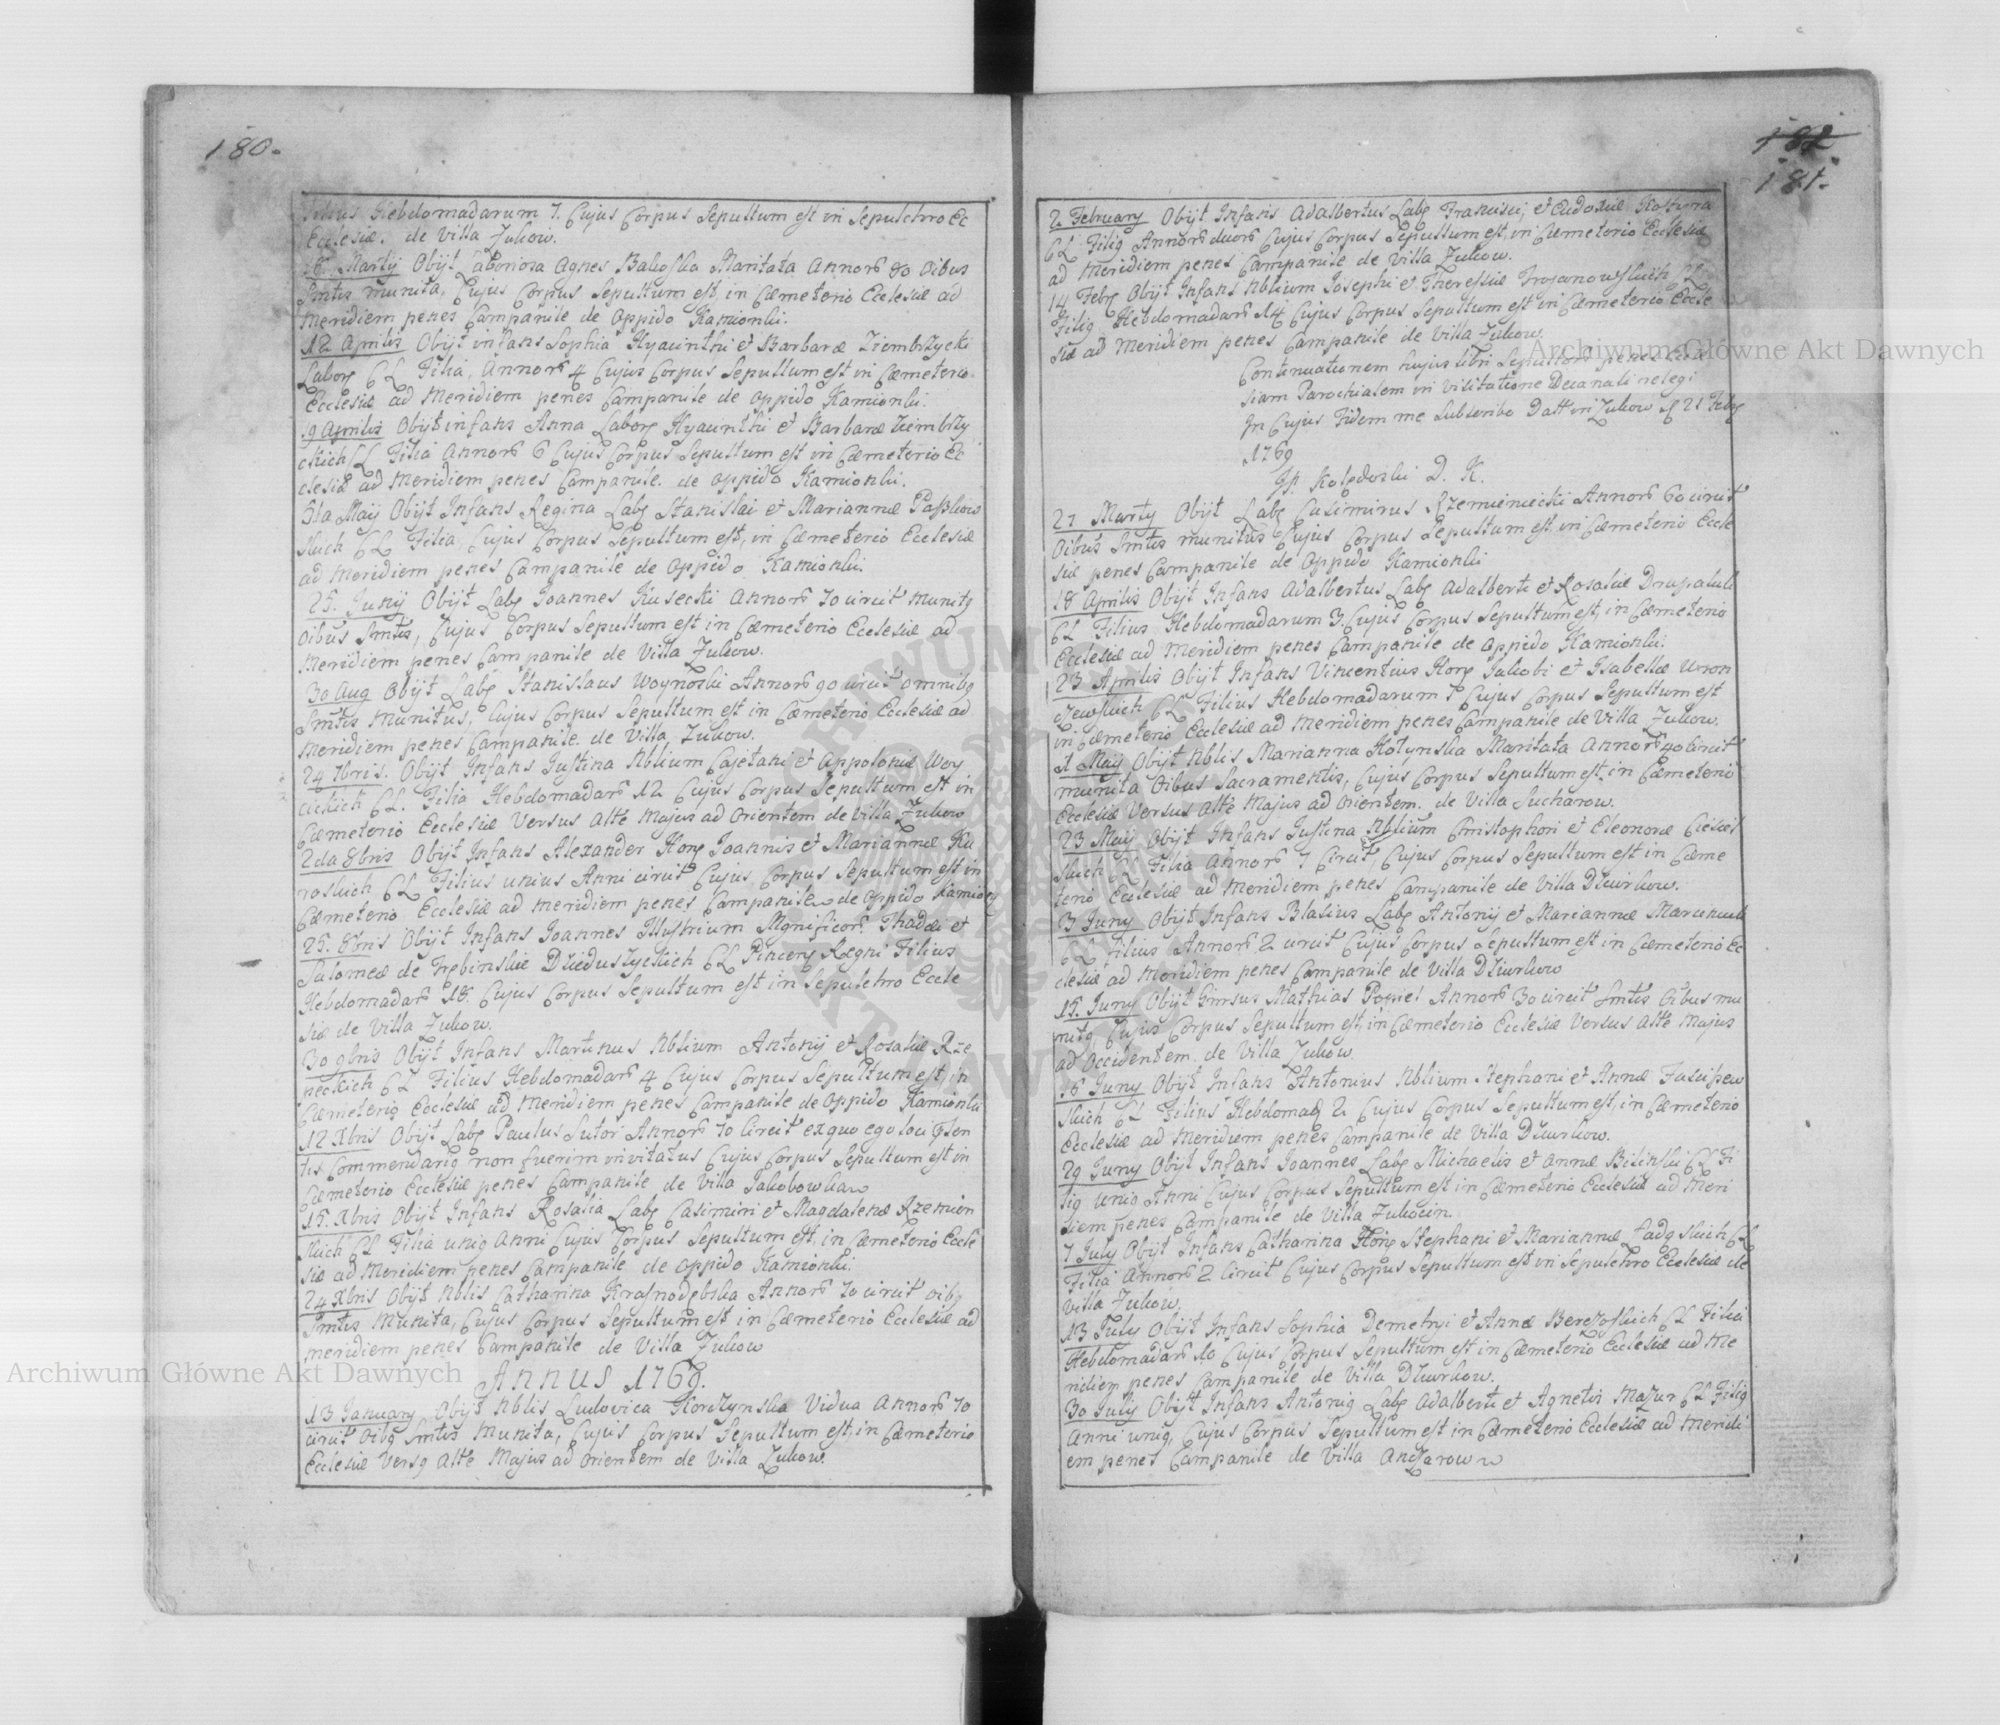 180.
Filius Hebdomadarum 7. Cujus Corpus Sepultum est in Sepulchro Ec
Ecclesiæ. de Villa Zukow.
18. Martij Obijt Laboriosa Agnes Maritata Annorũ 80 Oibus
Smtis munita, Cujus Corpus Sepultum est, in Cæmeterio Ecclesiæ ad
Meridiem penes Campanile de Oppido Kamionki.
12 Aprilis Obijt infans Sophia Hyacinthi et Barbaræ Ziembrzycki
Labor CL Filia, Annorũ 4 Cujus Corpus Sepultum est in Cæmeterio
Ecclesiæ ad Meridiem penes Campanile de Oppido Kamionki.
19 Aprilis Obijt infans Anna Labor Hyacinthi et Barbaræ Ziembrzy
ckich CL Filia Annorũ 6 Cujus Corpus Sepultum est in Cæmeterio Ec
clesiæ ad Meridiem penes Campanile. de Oppido Kamionki.
31a Maij Obijt Infans Regina Lab Stanislai et Mariannæ
skich CL Filia, Cujus Corpus Sepultum est, in Cæmeterio Ecclesiæ
ad Meridiem penes Campanile de Oppido Kamionki.
25. Junij Obijt Lab Joannes Kusecki Annorũ 70 circit munitg
Oibus Smtis, Cujus Corpus Sepultum est in Cæmeterio Ecclesiæ ad
Meridiem penes Campanile de Villa Zukow.
30 Aug Obijt Lab Stanislaus Woynoski Annorũ 90 circit omnibg
Smtis Munitus, Cujus Corpus Sepultum est in Cæmeterio Ecclesiæ ad
Meridiem penes Campanile. de Villa Zukow.
24 7bris. Obijt Infans Justina Nblium Cajetani et Appoloniæ Woy
cickich CL. Filia Hebdomadarũ 12 Cujus Corpus Sepultum est in
Cæmeterio Ecclesiæ Versus Alte Majus ad Orientem de Villa Zukow
2da 8bris Obijt Infans Alexander Hon Joannis et Mariannæ Ku
roskich CL Filius unius Anni circit Cujus Corpus Sepultum est in
Cæmeterio Ecclesiæ ad Meridiem penes Campanile de Oppido
25. 8bris Obijt Infans Joannes Illustrium Mgnificor. Thaddæi et
Salomeæ de Trębinskie Dzieduszyckich CL Pincern Regni Filius
Hebdomadarũ 18. Cujus Corpus Sepultum est in Sepulchro Eccle
siæ de Villa Zukow.
30 9bris Obijt Infans Martinus Nblium Antonij et Rosaliæ Rze
peckich CL Filius Hebdomadarũ 4 Cujus Corpus Sepultum est, in
Cæmeterio Ecclesiæ ad Meridiem penes Campanile de Oppido Kamionki
12 Xbris Obijt Lab Paulus Sutor Annorũ 70 Circit ex quo ego loci psen
tis Commendarig non fuerim invitatus Cujus Corpus Sepultum est in
Cæmeterio Ecclesiæ penes Campanile de Villa Jakobowka
15. Xbris Obijt Infans Rosalia Lab Casimiri et Magdalenæ Rzemien
skich CL Filia unig Anni Cujus Corpus Sepultum est, in Cæmeterio Eccle
siæ ad Meridiem penes Campanile de Oppido Kamionki.
24 Xbris Obijt Nblis Catharina Krasnodębska Annorũ 70 circit oibg
Smtis Munita, Cujus Corpus Sepultum est in Cæmeterio Ecclesiæ ad
meridiem penes Campanile de Villa Zukow
ANNUS 1769.
13 January Obijt Nblis Ludovica Korczynska Vidua Annorũ 70
circit Oibg Smtis Munita, Cujus Corpus Sepultum est, in Cæmeterio
Ecclesiæ Versg Alte Majus ad Orientem de Villa Zukow.
182
181.
2. February Obijt Infans Adalbertus Lab Francisci et Eudoxiæ
CL Filig Annorũ duorũ Cujus Corpus Sepultum est, in Cæmeterio Ecclesiæ
ad Meridiem penes Campanile de Villa Zukow.
14 Febr Obijt Infans Nblium Josephi et Theresiæ Trojanowskich CL
Filig Hebdomadarũ 14 Cujus Corpus Sepultum est in Cæmeterio Eccle
siæ ad Meridiem penes Campanile de Villa Zukow.
Continuationem hujus libri Sepultorũ penes Eccle
siam Parochialem in Visitatione Decanali relegi
In Cujus Fidem me Subscribo Datt in Zukow d 21 Febr
1769
Kolędoski D. K.
27 Marty Obijt Lab Casimirus Rzemieniecki Annorũ 60 circit
Oibus Smtis munitus Cujus Corpus Sepultum est, in Cæmeterio Eccle
siæ penes Campanile de Oppido Kamionki
18 Aprilis Obijt Infans Adalbertus Lab Adalberti et Rosaliæ
CL Filius Hebdomadarum 3. Cujus Corpus Sepultum est, in Cæmeterio
Ecclesiæ ad Meridiem penes Campanile de Oppido Kamionki.
23 Aprilis Obijt Infans Vincentius Hon Jakobi et Isabellæ Wron
czewskich CL Filius Hebdomadarum 7 Cujus Corpus Sepultum est
in Cæmeterio Ecclesiæ ad Meridiem penes Campanile de Villa Zukow.
1 Maij Obijt Nblis Marianna Hołynska Maritata Annorũ 40 Circit
munita Oibus Sacramentis, Cujus Corpus Sepultum est, in Cæmeterio
Ecclesiæ Versus Alte Majus ad Orientem. de Villa Sucharow.
23 Maij Obijt Infans Justina Nblium Christophori et Eleonoræ Ciesiel
skich CL Filia Annorũ 7 Circit, Cujus Corpus Sepultum est in Cæme
terio Ecclesiæ ad Meridiem penes Campanile de Villa Dzwrkow.
3 Juny Obijt Infans Blasius Lab Antonij et Mariannæ
CL Filius Annorũ 2 circit Cujus Corpus Sepultum est in Cæmeterio Ec
clesiæ ad Meridiem penes Campanile de Villa Dzwrkow
15. Juny Obijt Mathias Popiel Annorũ 30 circit Smtis Oibus mu
nitg, Cujus Corpus Sepultum est, in Cæmeterio Ecclesiæ Versus Alte Majus
ad Occidentem. de Villa Zukow.
16 Juny Obijt Infans Antonius Nblium Stephani et Annæ
skich CL Filius Hebdomad 2 Cujus Corpus Sepultum est, in Cæmeterio
Ecclesiæ ad Meridiem penes Campanile de Villa Dzwrkow.
29 Juny Obijt Infans Joannes Lab Michaelis et Annæ Bilinski CL Fi
lig unig Anni Cujus Corpus Sepultum est in Cæmeterio Ecclesiæ ad Meri
diem penes Campanile de Villa Zukocin.
7 July Obijt Infans Catharina Hon Stephani et Mariannæ CL
Filia Annorũ 2 Circit Cujus Corpus Sepultum est in Sepulchro Ecclesiæ de
Villa Zukow.
13 July Obijt Infans Sophia Demetryi et Annæ Berezoskich CL Filia
Hebdomadarũ 10 Cujus Corpus Sepultum est in Cæmeterio Ecclesiæ ad Me
ridiem penes Campanile de Villa Dzwrkow.
30 July Obijt Infans Antonig Lab Adalberti et Agnetis Mazur CL Filig
Anni unig, Cujus Corpus Sepultum est in Cæmeterio Ecclesiæ ad Meridi
em penes Campanile de Villa
Archiwum Główne Akt Dawnych
Archiwum Główne Akt Dawnych